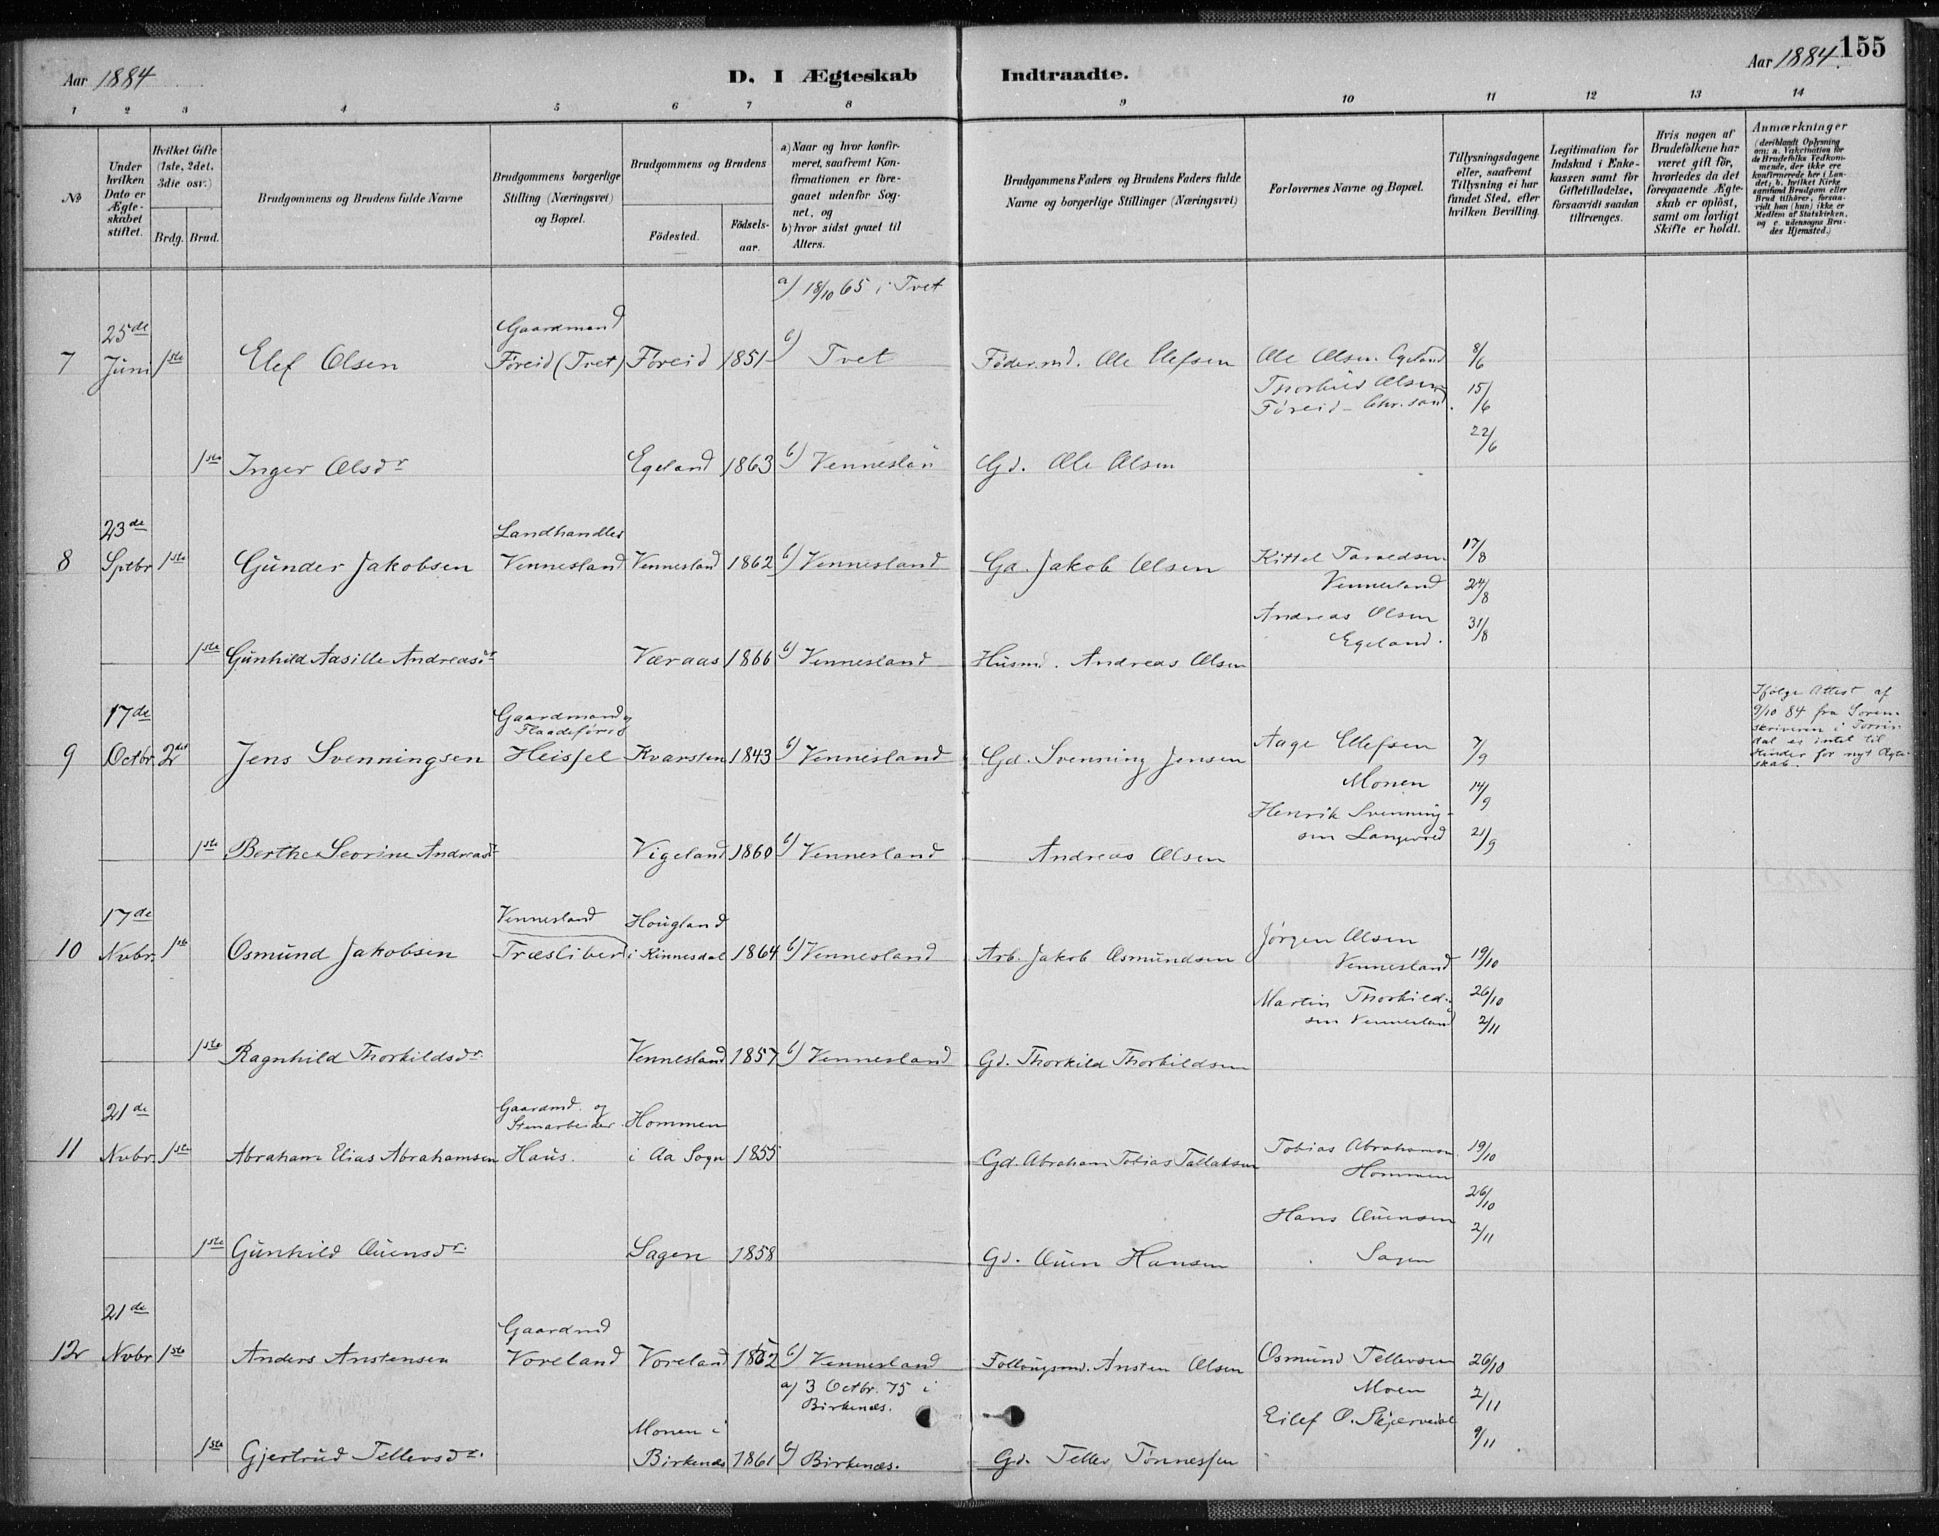 155
Aar 1884
D. I Ægteskab Indtraadte.
Aar 1884.
1 2 3 4 5 6 7 8 9 10 11 12 13 14
No
Under hvilken Dato er Ægteskabet stiftet.
Hvilket Gifte (1ste, 2det, 3die osv.)
Brdg. Brud.
Brudgommens og Brudens fulde Navne
Brudgommens borgerlige Stilling (Næringsvei) og Bopæl.
Brudgommens og Brudens
Födested.
Födsels-aar.
a) Naar og hvor konfirmeret, saafremt Konfirmationen er foregaaet udenfor Sognet, og
b) hvor sidst gaaet til Alters.
Brudgommens Faders og Brudens Faders fulde Navne og borgerlige Stillinger (Næringsvei)
Forlovernes Navne og Bopæl.
Tillysningsdagene eller, saafremt Tillysning ei har fundet Sted, efter hvilken Bevilling.
Legitimation for Indskud i Enkekassen samt for Giftetilladelse, forsaavidt saadan tiltrænges.
Hvis nogen af Brudefolkene har været gift för, hvorledes da det foregaaende Ægteskab er oplöst, samt om lovligt Skifte er holdt.
Anmærkninger
(deriblandt Oplysning om: a. Vakcination for de Brudefolks Vedkommende, der ikke ere konfirmerede her i Landet; b. hvilket Kirkesamfund Brudgom eller Brud tilhörer, forsaavidt han (hun) ikke er Medlem af Statskirken, og c. udensogns Brudes Hjemsted.)
a) 18/10 65 i Tvet
25de Gaardmand
7 Juni 1ste Elef Olsen Föreid (Tvet) Föreid 1851 b) Tvet Födermd. Ole Elefsen Ole Olsen Egeland 8/6
Thorkild Olsen 15/6
Föreid - Chr.sand.
22/6
1ste Inger Olsdr Egeland 1863 b) Vennesland Gd. Ole Olsen
23de Landhandler
8 Sptbr 1ste Gunder Jakobsen Vennesland Vennesland 1862 b) Vennesland Gd. Jakob Olsen Kittel Taraldsen 17/8
Vennesland 24/8
Andreas Olsen 31/8
Egeland.
1ste Gunhild Aasille Andreasdr Væraas 1866 b) Vennesland Husmd. Andreas Olsen
17de Gaardmand og Flaadefører
Ifølge Attest af 9/10 84 fra Sorenskriveren i Torrisdal er intet til Hinder for nyt Ægteskab.
9 Octbr. 2det Jens Svenningsen Heisel Kvarsten 1843 b) Vennesland Gd. Svenning Jensen Aage Ellefsen 7/9
Monen 14/9
Henrik Svenning-
sen 21/9
1ste Berthe Severine Andreasdr Vigeland 1860 b) Vennesland Andreas Olsen
17de Vennesland Hougland
10 Nvbr. 1ste Osmund Jakobsen Træsliber i Finnesdal 1864 b) Vennesland Arb. Jakob Osmundsen Jørgen Olsen
Vennesland 19/10
Martin Thorkild- 26/10
sen Vennesland 2/11
1ste Ragnhild Thorkildsdr. Vennesland 1857 b) Vennesland Gd. Thorkild Thorkildsen
21de Gaardmd. og Stenarbeider. Hommen
11 Nvbr. 1ste Abraham Elias Abrahamsen Haus. i Aa Sogn 1855 Gd. Abraham Tobias Tallaksen Tobias Abrahamsen 19/10
Hommen
26/10
Hans Auensen 2/11
1ste Gunhild Auensdr. Sagen 1858 Gd. Auen Hansen Sagen
21de
Gaardmd
12 Nvbr 1ste Anders Anstensen Voreland Voreland 1852 b) Vennesland Follougsmd. Ansten Olsen Osmund Tellevsen 26/10
a) 3 Octbr. 75 i Birkenæs. Moen 2/11
Eilef O. 9/11
Monen i
1ste Gjertrud Tellevsdr. Birkenæs 1861 b) Birkenæs. Gd. Tellev Tønnessen